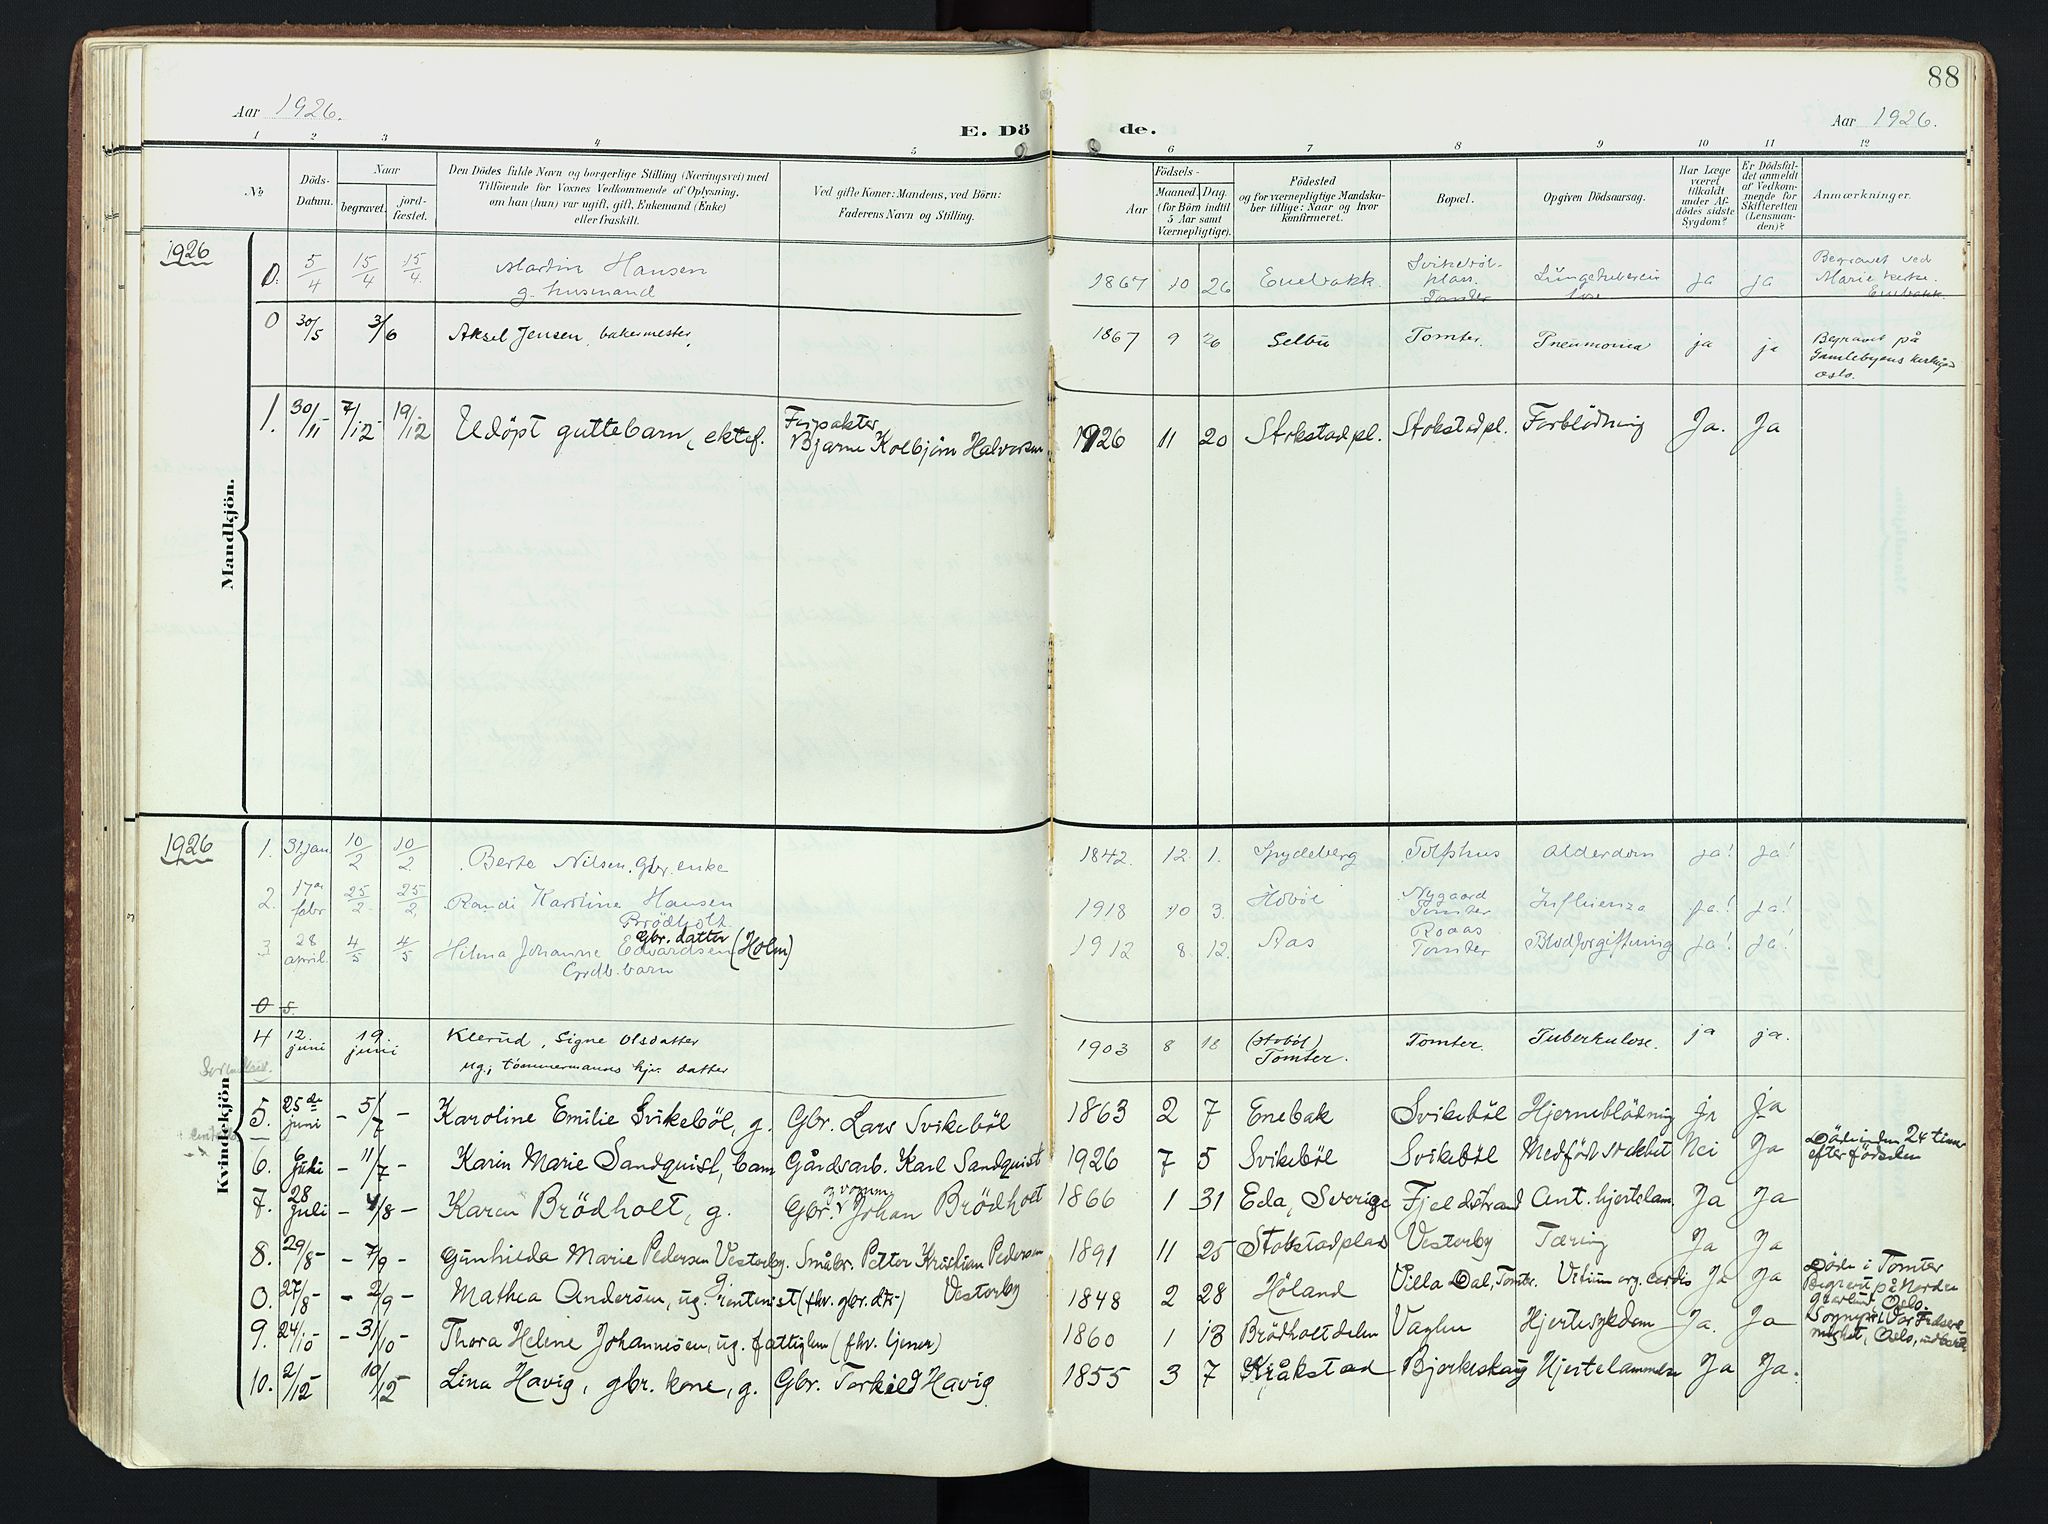 88
Aar 1926.
E. Dö
de.
Aar 1926.
1 2 3 4 5 6 7 8 9 10 11 12
No
Döds-Datum.
Naar
begravet.
jord-fæstet.
Den Dödes fulde Navn og borgerlige Stilling (Næringsvei) med
Tilföiende for Voxnes Vedkommende af Oplysning,
om han (hun) var ugift, gift, Enkemand (Enke)
eller fraskilt.
Ved gifte Koner: Mandens, ved Börn:
Faderens Navn og Stilling.
Födsels-
Aar
Maaned
Dag.
(for Börn indtil
5 Aar samt
Værnepligtige).
Födested
og for værnepligtige Mandska-
ber tillige: Naar og hvor
konfirmeret.
Bopæl.
Opgiven Dödsaarsag.
Har Læge
været
tilkaldt
under Af-
dödes sidste
Sygdom?
Er Dödsfal-
det anmeldt
af Vedkom-
mende for
Skifteretten
(Lensman-
den)?
Anmærkninger.
1926
Mandkjön.
0. 5/4 15/4 15/4 Martin Hansen g. husmand 1867 10 26 Enebakk. Svikebøl-plass Tomter ja ja Begravet ved Marie kirke. Enebakk.
0 30/5 3/6 Aksel Jensen, bakermester, 1867 9 26 Selbu Tomter. Pneumonia ja ja Begravet på Gamlebyens Oslo.
1. 30/11 7/12 19/12 Udöpt guttebarn, ektef. Bjarne Kolbjörn Halvorsen 1926 11 20 Stokstad pl. Stokstad pl. Forblödning Ja. Ja
1926
Kvindekjön
1. 31 jan 10/2 10/2 Berte Nilsen. Gbr. enke 1842. 12. 1. Spydeberg Tolfshus Alderdom ja! ja!
2. 17de febr 25/2 25/2 Randi Karoline Hansen Brödholt. 1918 10 3. Hobøl Nygaard Tomter Influenza ja! ja!
3 28 april. 4/5 4/5 Hilma Johanne Edvardsen (Holm) Gbr. datter Grdb. barn 1912 8. 12. Aas Roaas Tomter Blodforgiftning ja! ja!
0 5.
4 12. juni 19. juni Klerud, Signe Olsdatter ug; tömmermanns hjv. datter 1903 8 18 (Hobøl) Tomter. Tomter. Tuberkulose. ja ja.
5. 25de juni - 5/7 - Karoline Emilie Svikebøl, g. Gbr. Lars Svikebøl 1863 2 7 Enebak Svikebøl Hjerneblödning ja ja
6. 6 Juli - 11/7 - Karin Marie Sandquist, barn Gårdsarb. Karl Sandquist 1926 7 5 Svikebøl Svikebøl Medfödt svakhet Nei Ja Döde inden 24 timer efter födselen
7. 28 Juli - 4/8 - Karen Brödholt, g. Gbr. Johan Brödholt 1866 1 31 Eda, Sverige Fjeldstrand Ant. hjertelam. Ja Ja
8. 29/8 - - 7/9 - Gunhilda Marie Pedersen Vestorby. Småbr. Petter Kristian Pedersen Vestorby 1891 11 25 Stokstadplads Vestorby Tæring Ja Ja
0. 27/8 - - 2/9 - Mathea Andersen, ug. rentenist (fhv. gbr. dtr-) 1848 2 28 Höland Villa Dal, Tomter. Vitium org. cordis Ja Ja Döde i Tomter Begravet på Nordre gravlund, Oslo.
9. 24/10 - 31/10 - Thora Helene Johannesen, ug. fattiglem (fhv. tjener) 1860 1 13 Brödholtdelen Vaglen Hjertesykdom Ja. Ja Sognepr. i Vor Frelsers Oslo,
10. 2/12 - 10/12 - Lina Havig, gbr. kone, g. Gbr. Torkild Havig. 1855 3 7 Kråkstad Bjerkeskaug Hjertelammelse Ja Ja.